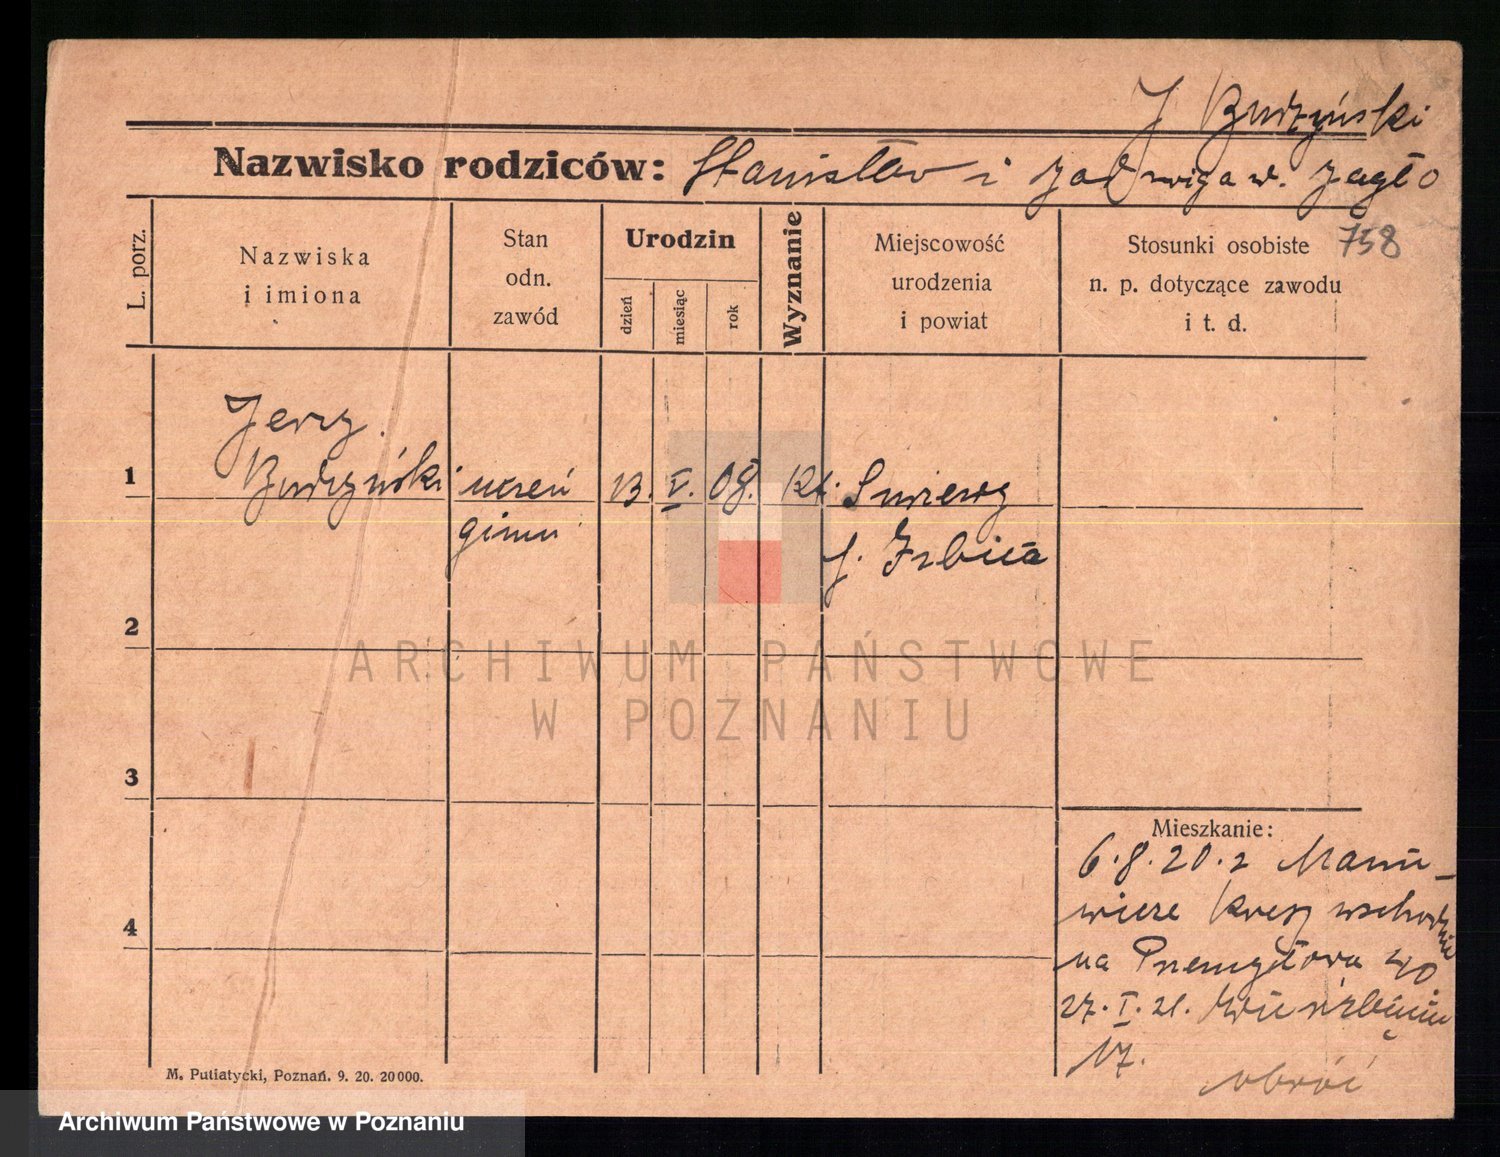 J Budzyński
Nazwisko rodziców: Stanisław i Jadwiga w. Jagło
758
L. porz.
Nazwiska
i imiona
Stan
odn.
zawód
Urodzin
dzień
miesiąc
rok
Wyznanie
Miejscowość
urodzenia
i powiat
Stosunki osobiste
n. p. dotyczące zawodu
i t. d.
1
Jerzy
Budzyński
uczeń
gimn
13. V. 08.
Izbica
2
3
4
Mieszkanie:
6.8.20. z
wicze Kresy wschodnie
na Przemysłowa 40
27.I.21.
17.
obróć
M. Putiatycki, Poznań. 9. 20. 20000.
ARCHIWUM PAŃSTWOWE
W POZNANIU
Archiwum Państwowe w Poznaniu